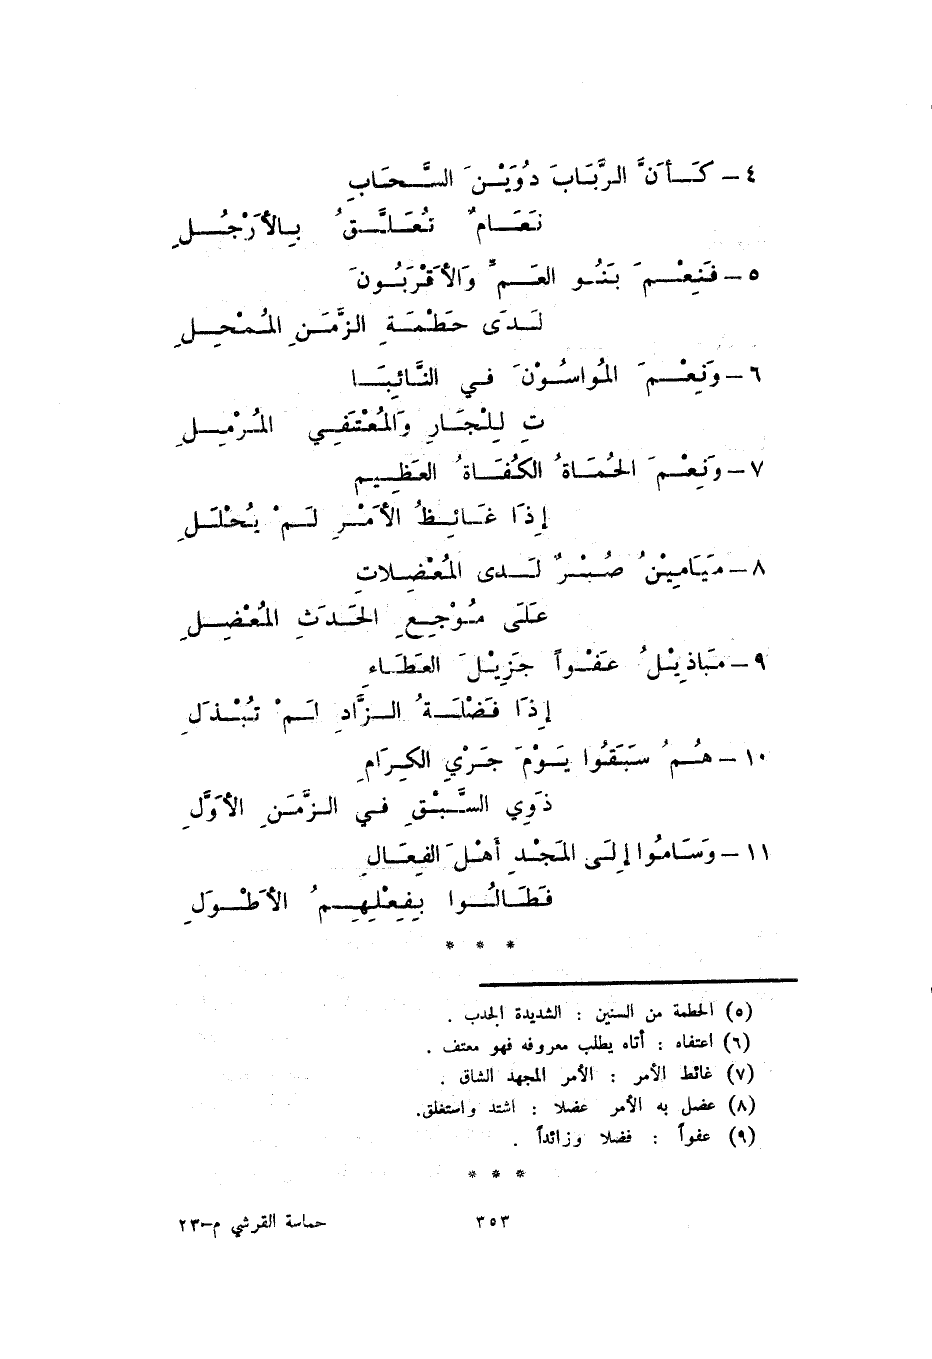 ٤ – كَأَنَّ الرَّبَابَ دُوَيْنَ السَّحَابِ
نَعَامٌ تُعَلَّقُ بِالأَرْجُلِ
٥ – فَنِعْمَ بَنُو العَمِّ وَالأَقْرَبُونَ
لَدَى حَطْمَةِ الزَّمَنِ المُمْحِلِ
٦ – وَنِعْمَ المُواسُوْنَ فِي النَّائِبَا
تِ لِلْجَارِ وَالمُعْتَفِي المُرْمِلِ
٧ – وَنِعْمَ الحُمَاةُ الكُفَاةُ العَظِيمِ
إِذَا غَائِظُ الأَمْرِ لَمْ يُحْلَلِ
٨ – مَيَامِيْنُ صُبْرٌ لَدى المُعْضِلاتِ
عَلَى مُوْجِعِ الحَدَثِ المُعْضِلِ
٩ – مَبَاذِيْلُ عَفْواً جَزِيْلَ العَطَاءِ
إِذَا فَضْلَةُ الزَّادِ لَمْ تُبْذَلِ
١٠ – هُمُ سَبَقُوا يَوْمَ جَرْيِ الكِرَامِ
ذَوِي السَّبْقِ فِي الزَّمَنِ الأَوَّلِ
١١ – وَسَامُوا إِلَى المَجْدِ أَهْلَ الفِعَالِ
فَطَالُوا بِفِعْلِهِمُ الأَطْوَلِ
* * *
(٥) الحطمة من السنين : الشديدة الجدب .
(٦) اعتفاه : أتاه يطلب معروفه فهو معتف .
(٧) غائظ الأمر : الأمر المجهد الشاق .
(٨) عضل به الأمر عضلا : اشتد واستغلق.
(٩) عفواً : فضلا وزائداً .
* * *
٣٥٣
حماسة القرشي م–٢٣